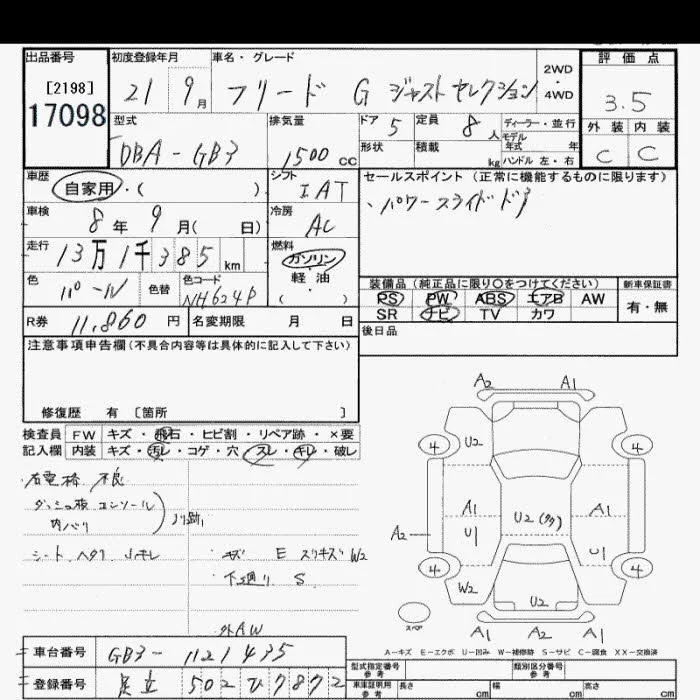 出品番号 初度登録年月 車名・グレード 2WD・4WD 評価点
[2198] 17098 21 9月 フリード G ジャストセレクション 3.5
型式 排気量 ドア 5 定員 8人 ディーラー・並行 外装 内装
DBA-GB3 1500cc 形状 積載 kg モデル年式 年 ハンドル 左・右 C C
車歴 自家用・( ) シフト IAT セールスポイント (正常に機能するものに限ります)
車検 8年9月( 日) 冷房 AC 、パワースライドドア
走行 13万1千385km 燃料 ガソリン・軽・油・( )
装備品 (純正品に限り○をつけてください) 新車保証書
色 パール 色替 色コード NH624P PS PW ABS エアB AW 有・無
R券 11,860円 名変期限 月 日 SR ナビ TV カワ
注意事項申告欄 (不具合内容等は具体的に記入して下さい) 後日品
修復歴 有 [箇所 ]
検査員記入欄 FW キズ・飛石・ヒビ割・リペア跡・×要
内装 キズ・汚レ・コゲ・穴・スレ・キレ・破レ
A2 A1
4 U2 4
右電格 不良
ダッシュ板 コンソール
内バリ ノリ跡
A1 U2 A1
A2 U1 U1
シート ヘタリ
・キズ E スリキズ W2
・下廻り S
4 4
W2 U2
外AW
スペア A1 A2 A1
車台番号 GB3-1121435
A-キズ E-エクボ U-凹み W-補修跡 S-サビ C-腐食 XX-交換済
登録番号 足立 502 ひ 7872
型式指定番号 類別区分番号
車庫証明用参考 長さ cm 幅 cm 高さ cm